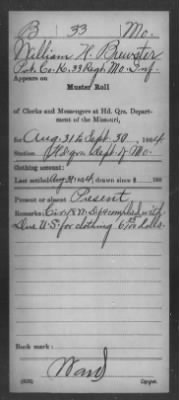 B 33 Mo.
William H. Brewster
Pvt. Co. K. 33 Regt. Mo. Inf.
Appears on
Muster Roll
of Clerks and Messengers at Hd. Qrs. Department
of the Missouri,
for Aug. 31 to Sept. 30, 1864
Station Hd.qrs. Dept. of Mo.
Clothing amount:
Last settled Aug 31 1864; drawn since $ 100
Present or absent Present
Remarks: complied with
Due U.S. for clothing
Book mark:
Ward
Copyist.